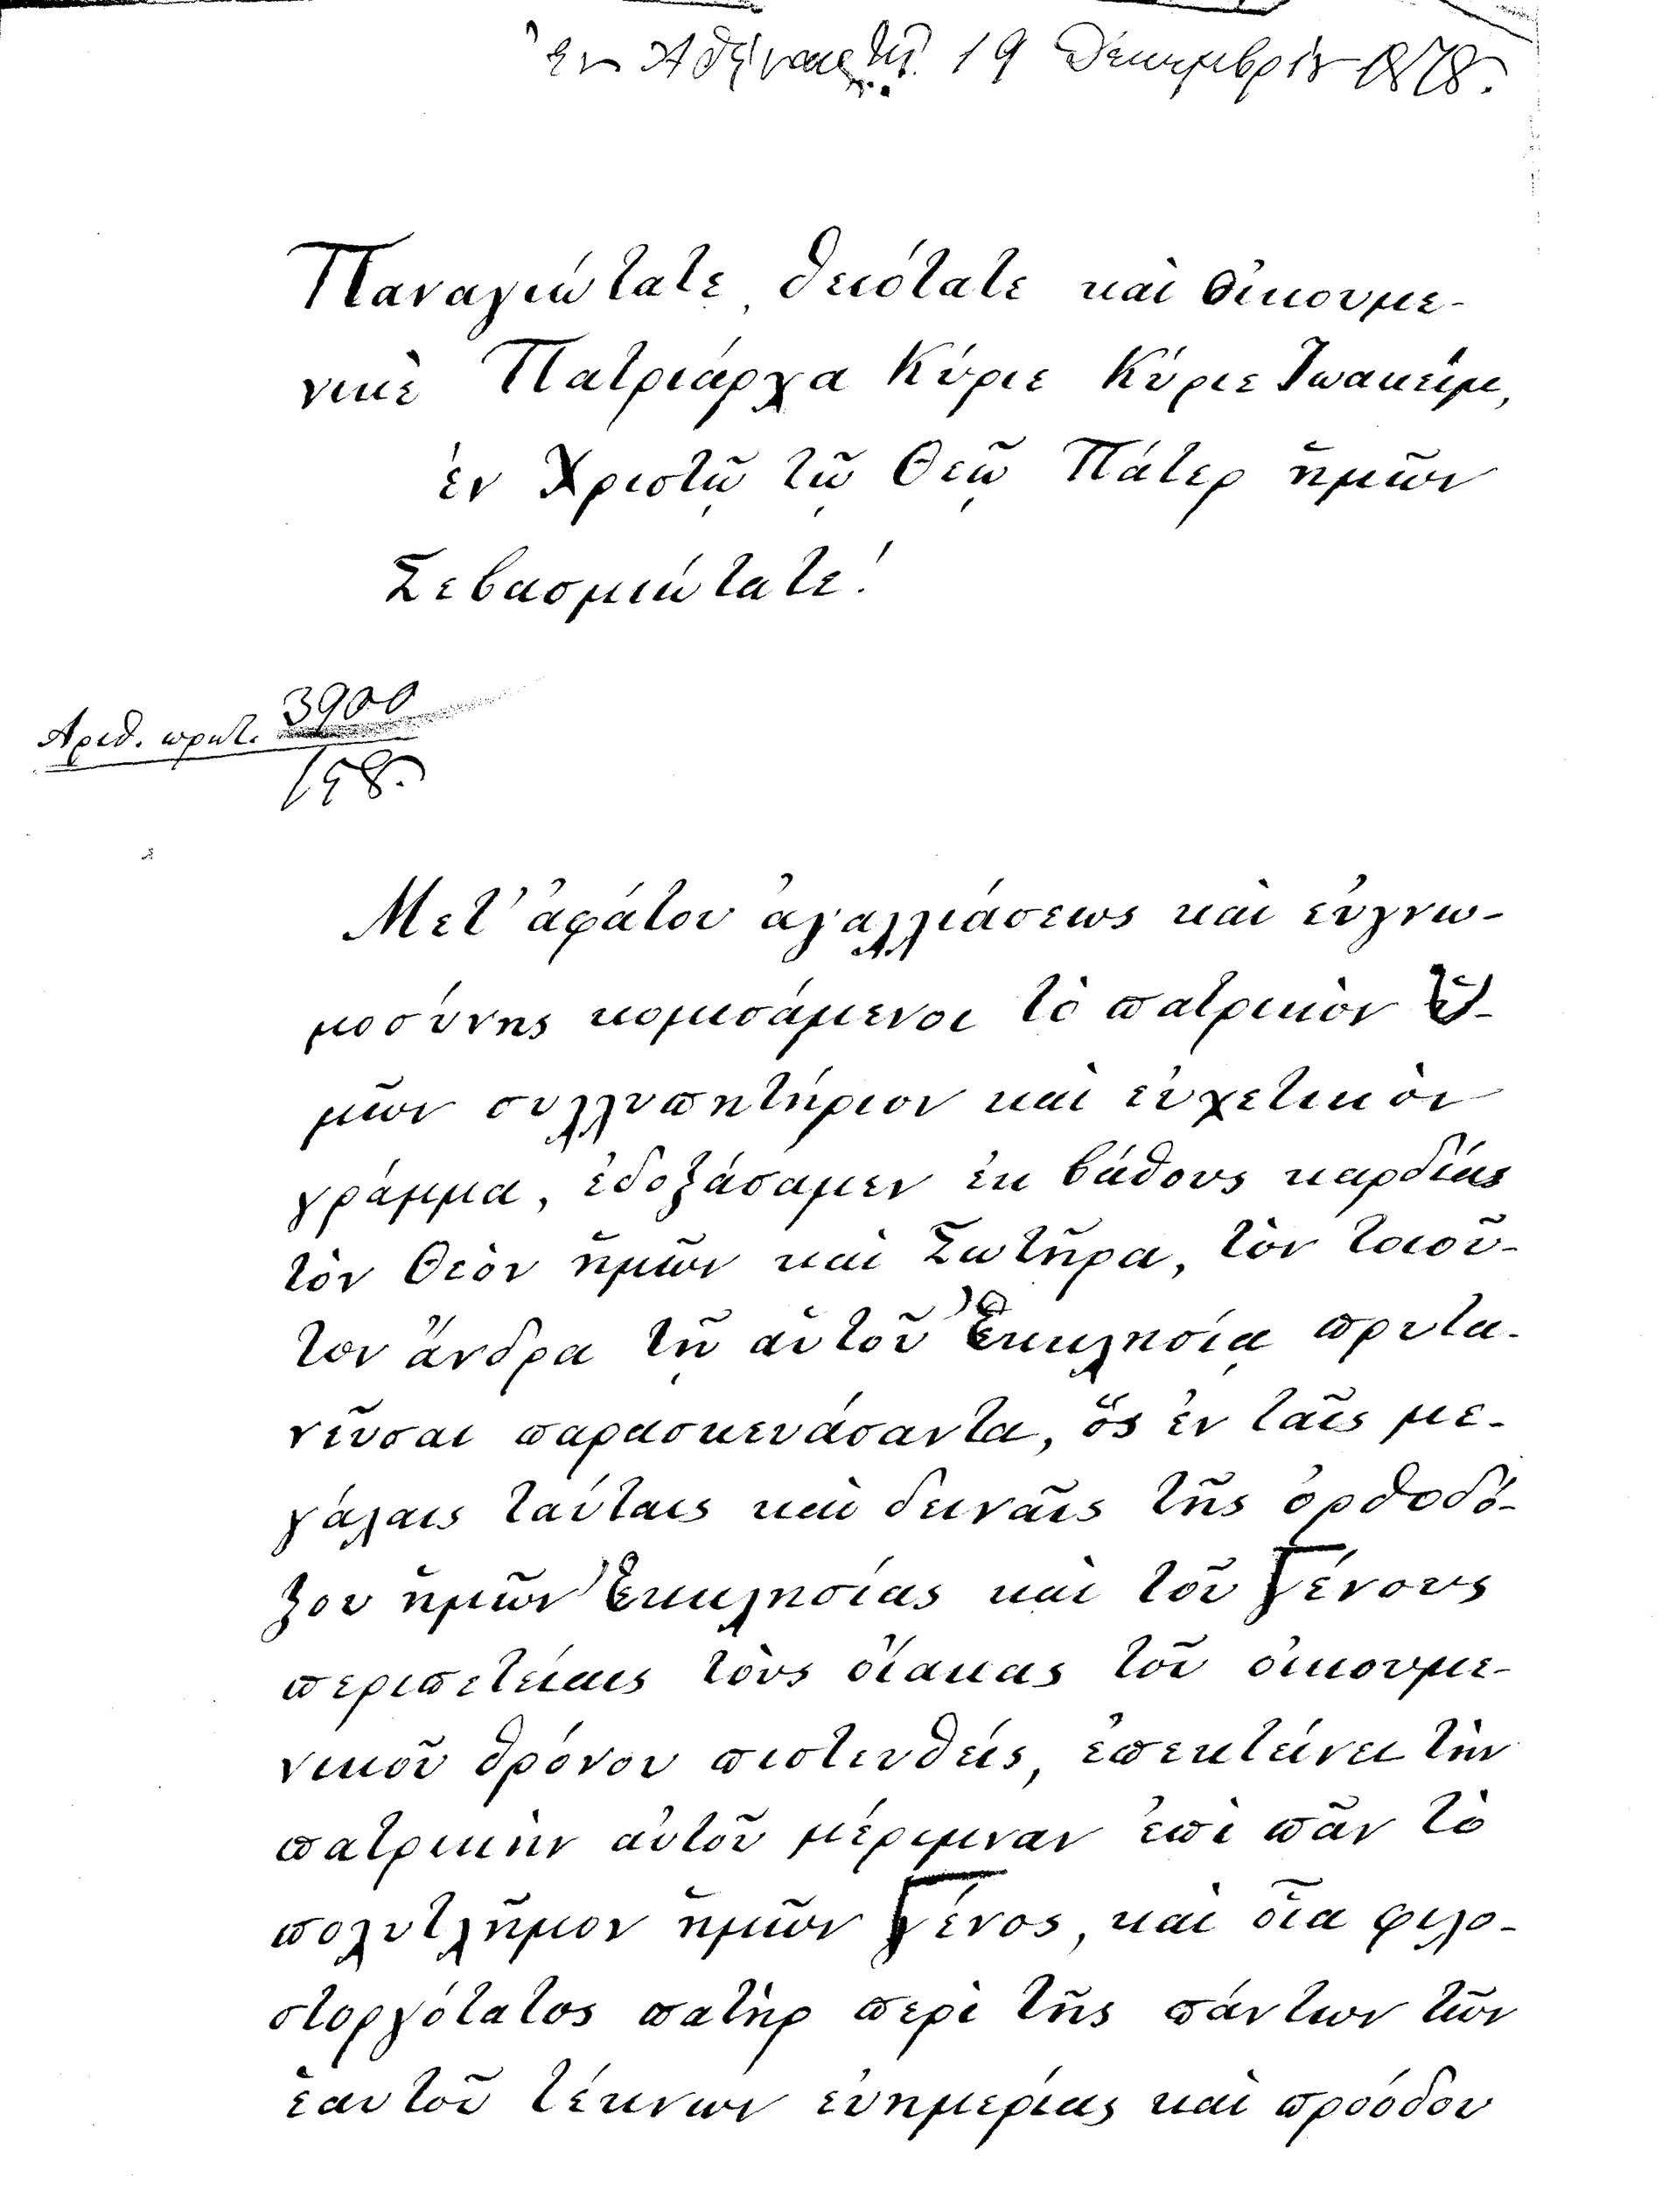 Ἐν Ἀθήναις τῇ 19 Δεκεμβρίου 1878.
Παναγιώτατε, θειότατε καὶ Οἰκουμε-
νικὲ Πατριάρχα Κύριε Κύριε Ἰωακείμ,
ἐν Χριστῷ τῷ Θεῷ Πάτερ ἡμῶν
Σεβασμιώτατε!
Ἀριθ. πρωτ. 3900
158.
Μετ' ἀφάτου ἀγαλλιάσεως καὶ εὐγνω-
μοσύνης κομισάμενοι τὸ πατρικὸν Ὑ-
μῶν συλλυπητήριον καὶ εὐχετικὸν
γράμμα, ἐδοξάσαμεν ἐκ βάθους καρδίας
τὸν Θεὸν ἡμῶν καὶ Σωτῆρα, τὸν τοιοῦ-
τον ἄνδρα τῇ αὑτοῦ Ἐκκλησίᾳ πρυτα-
νεῦσαι παρασκευάσαντα, ὃς ἐν ταῖς με-
γάλαις ταύταις καὶ δειναῖς τῆς ὀρθοδό-
ξου ἡμῶν Ἐκκλησίας καὶ τοῦ Γένους
περιπετείαις τοὺς οἴακας τοῦ οἰκουμε-
νικοῦ θρόνου πιστευθείς, ἐπεκτείνει τὴν
πατρικὴν αὐτοῦ μέριμναν ἐπὶ πᾶν τὸ
πολυτλῆμον ἡμῶν Γένος, καὶ οἷα φιλο-
στοργότατος πατὴρ περὶ τῆς πάντων τῶν
ἑαυτοῦ τέκνων εὐημερίας καὶ προόδου